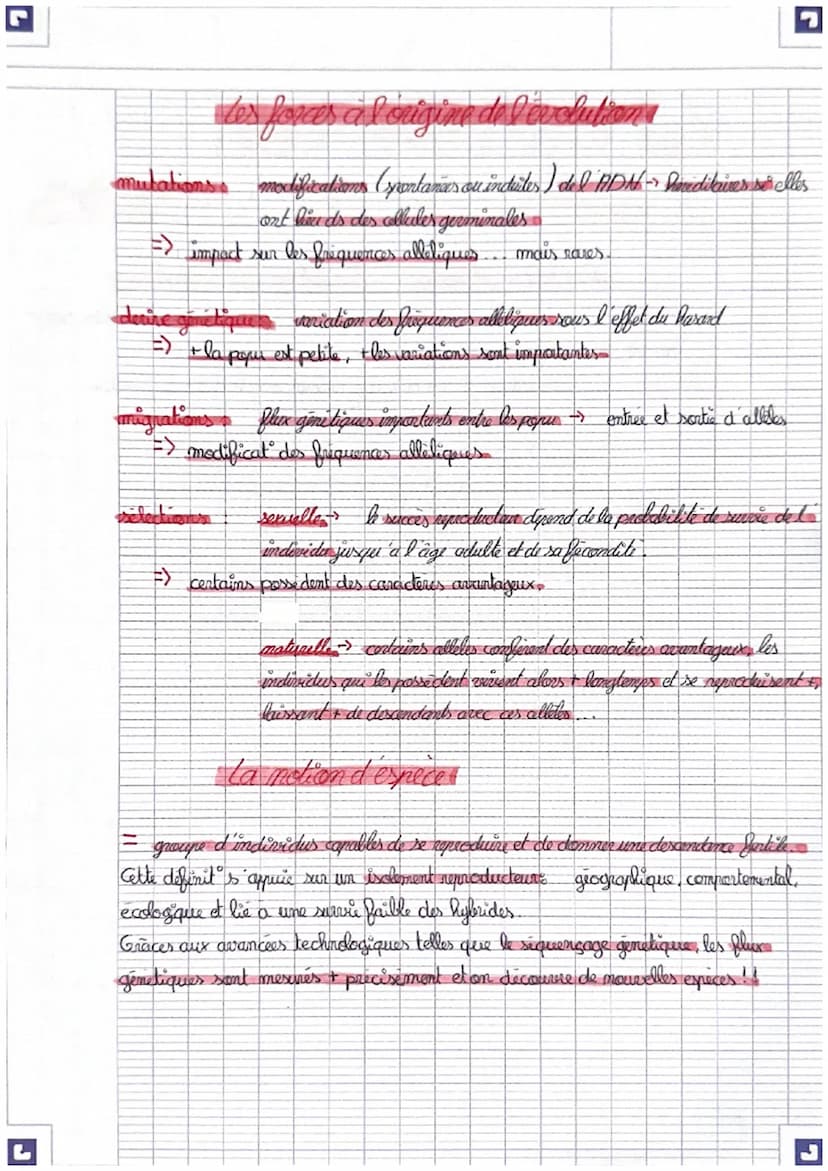 Les forces à l'origine de l'évolution
mutations : modifications (spontanées ou induites) de l'ADN → héréditaires si elles
ont lieu ds des cellules germinales
=> impact sur les fréquences alléliques ... mais rares.
dérive génétique : variation des fréquences alléliques sous l'effet du hasard
=> + la popu est petite, + les variations sont importantes
migrations : flux génétiques importants entre les popu → entrée et sortie d'allèles
=> modificat° des fréquences alléliques
sélections : sexuelle → le succès reproducteur dépend de la probabilité de survie de l'
individu jusqu'à l'âge adulte et de sa fécondité.
=> certains possèdent des caractères avantageux.
naturelle → certains allèles confèrent des caractères avantageux, les
individus qui les possèdent vivent alors + longtemps et se reproduisent +,
laissant + de descendants avec ces allèles ...
La notion d'espèce
= groupe d'individus capables de se reproduire et de donner une descendance fertile.
Cette définit° s'appuie sur un isolement reproducteur : géographique, comportemental,
écologique et lié à une survie faible des hybrides.
Grâces aux avancées technologiques telles que le séquençage génétique, les flux
génétiques sont mesurés + précisément et on découvre de nouvelles espèces !!